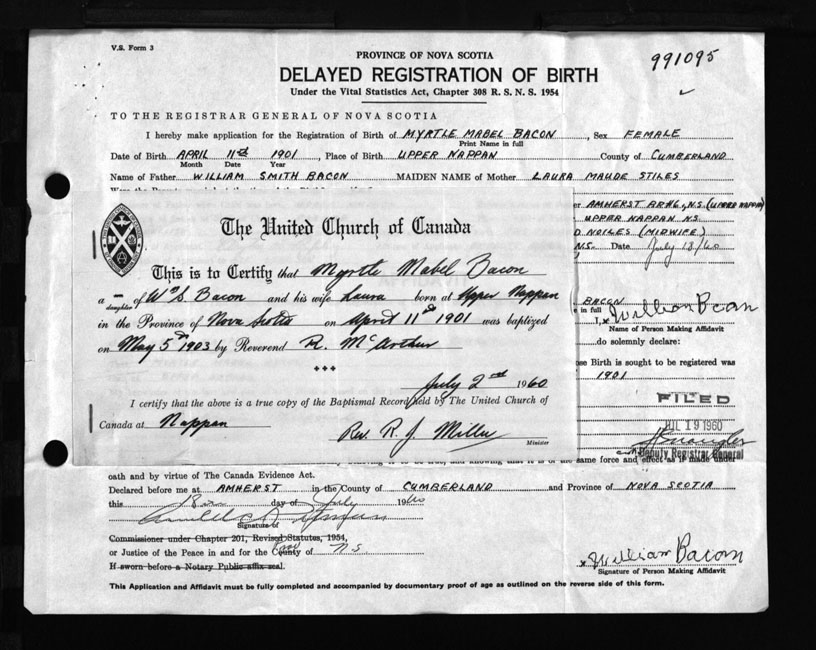 V.S. Form 3
PROVINCE OF NOVA SCOTIA
991095
DELAYED REGISTRATION OF BIRTH
Under the Vital Statistics Act, Chapter 308 R. S. N. S. 1954
TO THE REGISTRAR GENERAL OF NOVA SCOTIA
I hereby make application for the Registration of Birth of MYRTLE MABEL BACON, Sex FEMALE
Print Name in full
Date of Birth APRIL 11th 1901, Place of Birth UPPER NAPPAN County of CUMBERLAND
Month Date Year
Name of Father WILLIAM SMITH BACON MAIDEN NAME of Mother LAURA MAUDE STILES
AMHERST RR#6, N.S. (UPPER NAPPAN)
UPPER NAPPAN N.S.
D NOILES (MIDWIFE)
N.S. Date July 18/60
The United Church of Canada
This is to Certify that Myrtle Mabel Bacon
a daughter of Wm S. Bacon and his wife Laura born at Upper Nappan
in the Province of Nova Scotia on April 11th 1901 was baptized
on May 5th 1903 by Reverend R. McArthur
July 2nd 1960
I certify that the above is a true copy of the Baptismal Record held by The United Church of
Canada at Nappan
Rev. R. J. Miller
Minister
BACON
e in full
I, William Bacon
Name of Person Making Affidavit
do solemnly declare:
ose Birth is sought to be registered was
1901
FILED
JUL 19 1960
Deputy Registrar General
same force and effect as if made under
oath and by virtue of The Canada Evidence Act.
Declared before me at AMHERST in the County of CUMBERLAND and Province of NOVA SCOTIA
this 18th day of July 1960
Signature of
Commissioner under Chapter 201, Revised Statutes, 1954,
or Justice of the Peace in and for the County of N.S
If sworn before a Notary Public affix seal.
William Bacon
Signature of Person Making Affidavit
This Application and Affidavit must be fully completed and accompanied by documentary proof of age as outlined on the reverse side of this form.